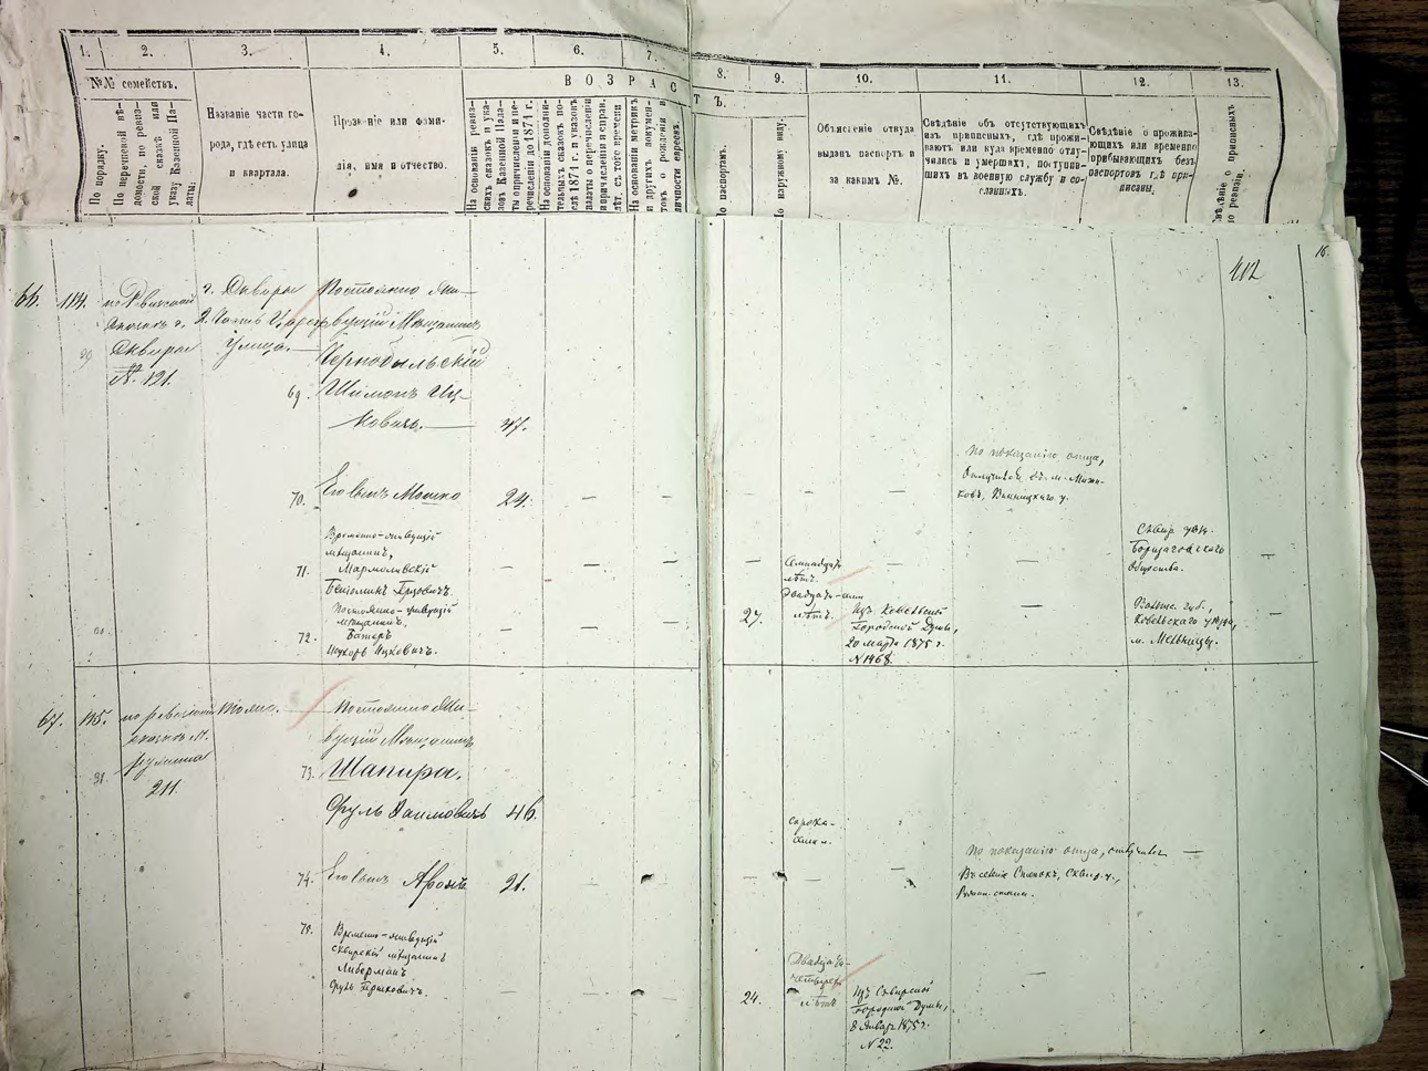 1.
2.
3.
4.
5.
6.
7.
8.
9.
10.
11.
12.
13.
№№ семействъ.
ВОЗРАСТЪ.
По порядку.
По переписной вѣ-
домости, по ревиз-
ской сказкѣ или
указу Казенной Па-
латы:
Названіе части го-
рода, гдѣ есть улица
и квартала.
Прозваніе или фами-
лія, имя и отчество.
На основаніи ревиз-
скихъ сказокъ и ука-
зовъ Казенной Пала-
ты о причисленіи и пе-
речисленіи до 1874 г.
На основаніи дополни-
тельныхъ сказокъ по-
слѣ 1874 г. и указовъ
палаты о перечисленіи
и причисленіи и справ.
лѣт. съ того времени
На основаніи метрикъ
и другихъ докумен-
товъ о рожденіи и
личности евреевъ.
По паспортамъ.
По наружному виду.
Объясненіе откуда
выданъ паспортъ и
за какимъ №.
Свѣдѣніе объ отсутствующихъ
изъ приписныхъ, гдѣ прожи-
ваютъ или куда временно отлу-
чились и умершихъ, поступив-
шихъ въ военную службу и со-
сланныхъ.
Свѣдѣніе о прожива-
ющихъ или временно
прибывающихъ безъ
паспортовъ гдѣ при-
писаны.
Свѣдѣніе о приписныхъ
по ревизіи.
412
16.
66. 184. по Ревизской г. Сквира Постоянно жи-
сказкѣ г. 2. Часть вущій Мѣщанинъ
Сквиры улица. Чернобыльскій
№. 121.
69. Шимонъ Иц-
ковичъ. 47.
70. Его сынъ Мошко 24. — —
По показанію отца,
Отлучился въ м.
Винницкаго у.
71. Временно-живущій
мѣщанинъ,
Бенюминъ
лѣтъ.
Сквир. уѣзд.
общества.
72. Постоянно-живущій
мѣщанинъ,
Ицковичъ.
27. лѣтъ. Изъ Ковельской
Городской Думы,
20 марта 1875 г.
№ 1468.
Волынс. губ.,
Ковельскаго уѣзда,
м. Мельницы.
67. 185. по ревизской тоже. Постоянно жи-
сказкѣ м. вущій Мѣщанинъ
31. Ружина 73. Шапира,
211. Сруль Хаимовичъ 46.
сорока-
74. Его сынъ Аронъ 21. — —
По показанію отца, отлучился —
Въ селеніе Сквир. у.,
75. Временно-живущій
сквирскій мѣщанинъ
Либерманъ
Сруль
24. Двадцать-
четыре
лѣтъ Изъ Сквирской
Городской Думы,
8 Января 1875 г.
№ 22.